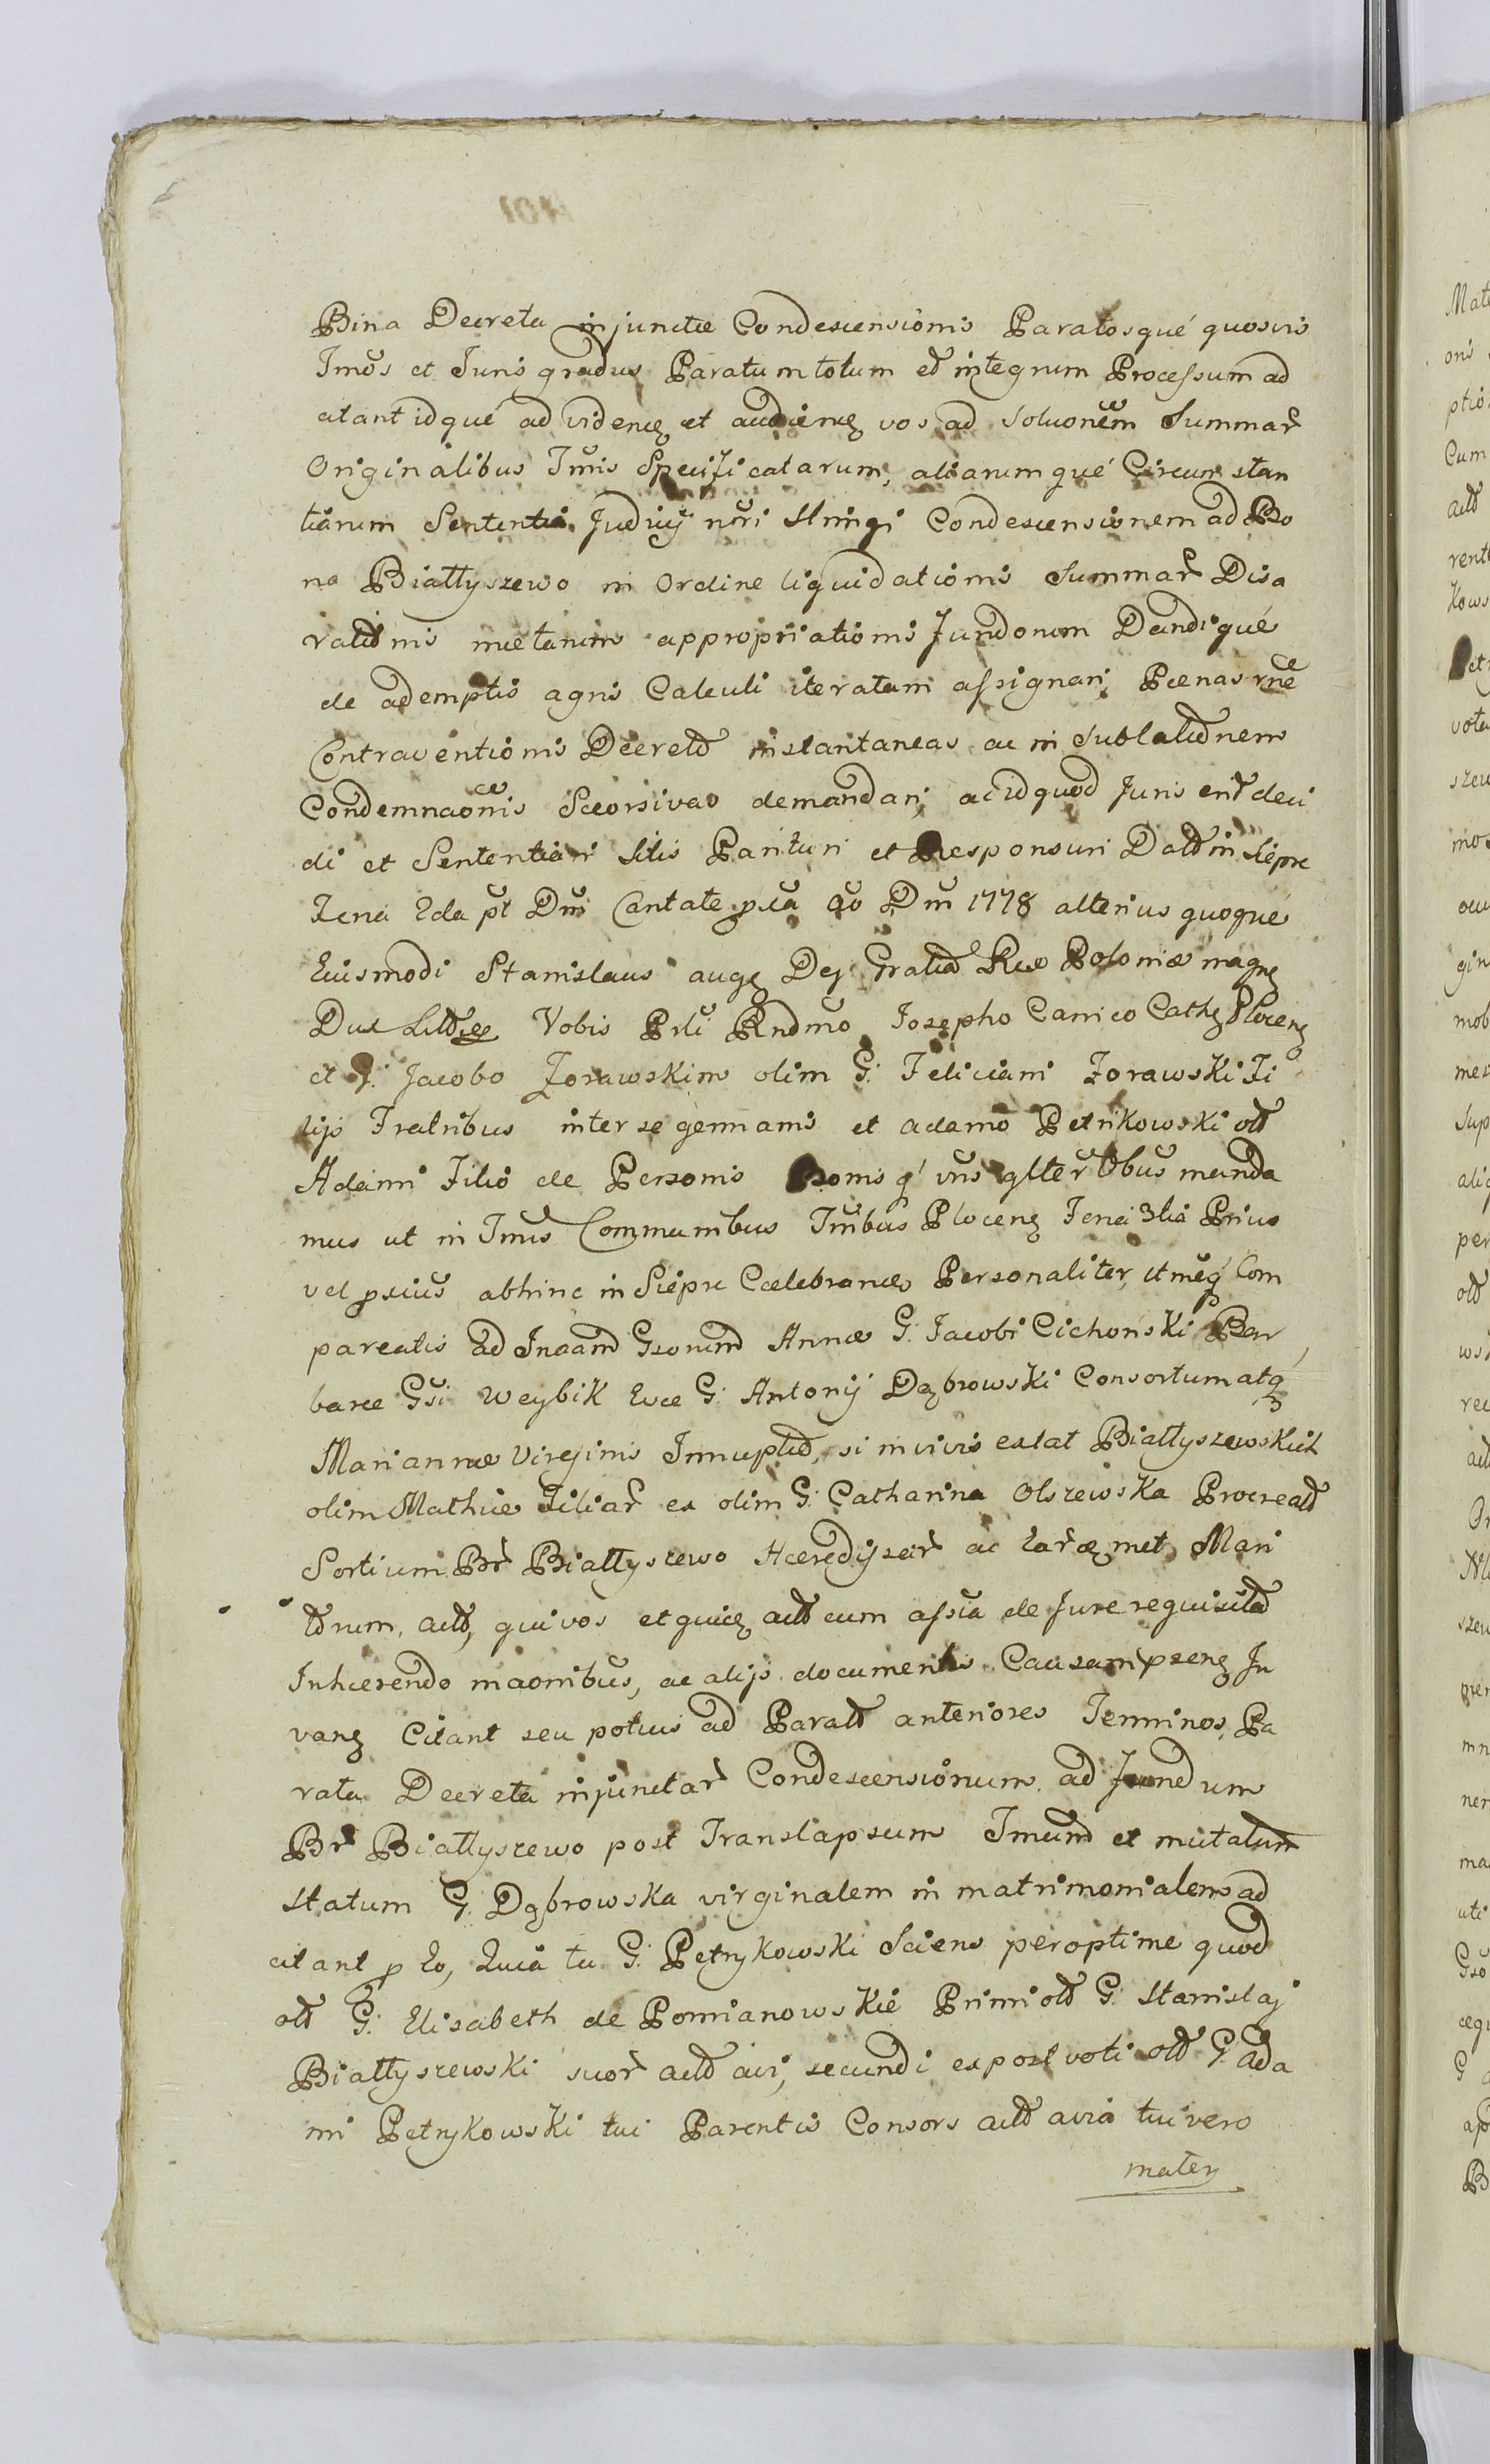 Bina Decreta injunctæ Condescensionis Paratosqué quosvis
Tmõs et Juris gradus Paratum totum et integrum Processum ad
citant idqué ad videnᶎ et audienᶎ vos ad soluonẽm Summar̃
Originalibus Tmis Specificatarum, aliarumqué Circumstan
tiarum Sententia Judicij nr̃i stringi Condescensionem ad Bo
na Białłyszewo in Ordine liquidationis Summar̃
metarum appropriationis fundorum Dandiqué
de ademptis agris Calculi iteratam assignari Pœnas rñe
Contraventionis Decret̃ instantaneas ac in Sublat̃nem
Condemnaõnis Sceorsivas demandari ac id quod Juris erit̃ deci
di et Sententiari Sitis Parituri et Responsuri Dat̃ in Siepre
Feria 2da pt Dm̃ Cantate pxã aõ Dm̃ 1778 alterius quoqué
Eiusmodi Stanislaus augᶎ Dej Gratia Rex Poloniæ magnᶎ
Dux Litt̃ Vobis Prli Rndmõ Josepho Canico Cathᶎ Plocenᶎ
et G: Jacobo Zorawskim olim G: Feliciani Zorawski Fi
lijs Fratribus inter se germanis et Adamo Petrikowski olt̃
Adami Filio de Personis Bonis q́ vr̃is glter̃ Obus manda
mus ut in Tmis Communibus Tmibus Plocenᶎ Feria 3tia Prius
vel pxius abhinc in Siepre Cœlebrandᶎ Personaliter, itmeq́ Com
pareatis Ad Jnaam̃ Gsorum̃ Annæ G: Jacobi Cichonski Bar
baræ Gsi Weybik Evæ G: Antonij Dąbrowski Consortum atq́
Mariannæ Virginis Innupt̃, si in vivis extat Białłyszewskich
olim Mathiæ Filiar̃ ex olim G: Catharina Olszewska Procreat̃
Sortium Br̃ Białłyszewo Hæredissar̃ ac Ear̃ᶎmet Mari
t̃rum, act̃, qui vos et quicᶎ act̃ cum assia de Jure requisita
Inhærendo maõnibus, ac alijs documentis Causam pxenᶎ Ju
vanᶎ Citant seu potius ad Parat̃ anteriores Terminos, Pa
rata Decreta injunctar̃ Condescensionum ad Fundum
Br̃ Białłyszewo post Translapsum Tmum̃ et mutatum̃
statum G: Dąbrowska virginalem in matrimonialem ad
citant p Eo, Quia tu G: Petrykowski Sciens peroptime quod
olt̃ G: Elisabeth de Pomianowskie Primi olt̃ G: Stanislaj
Białłyszewski suor̃ act̃ avi, secundi expost voti olt̃ G: Ada
mi Petrykowski tui Parentis Consors act̃ avia tui vero
mater